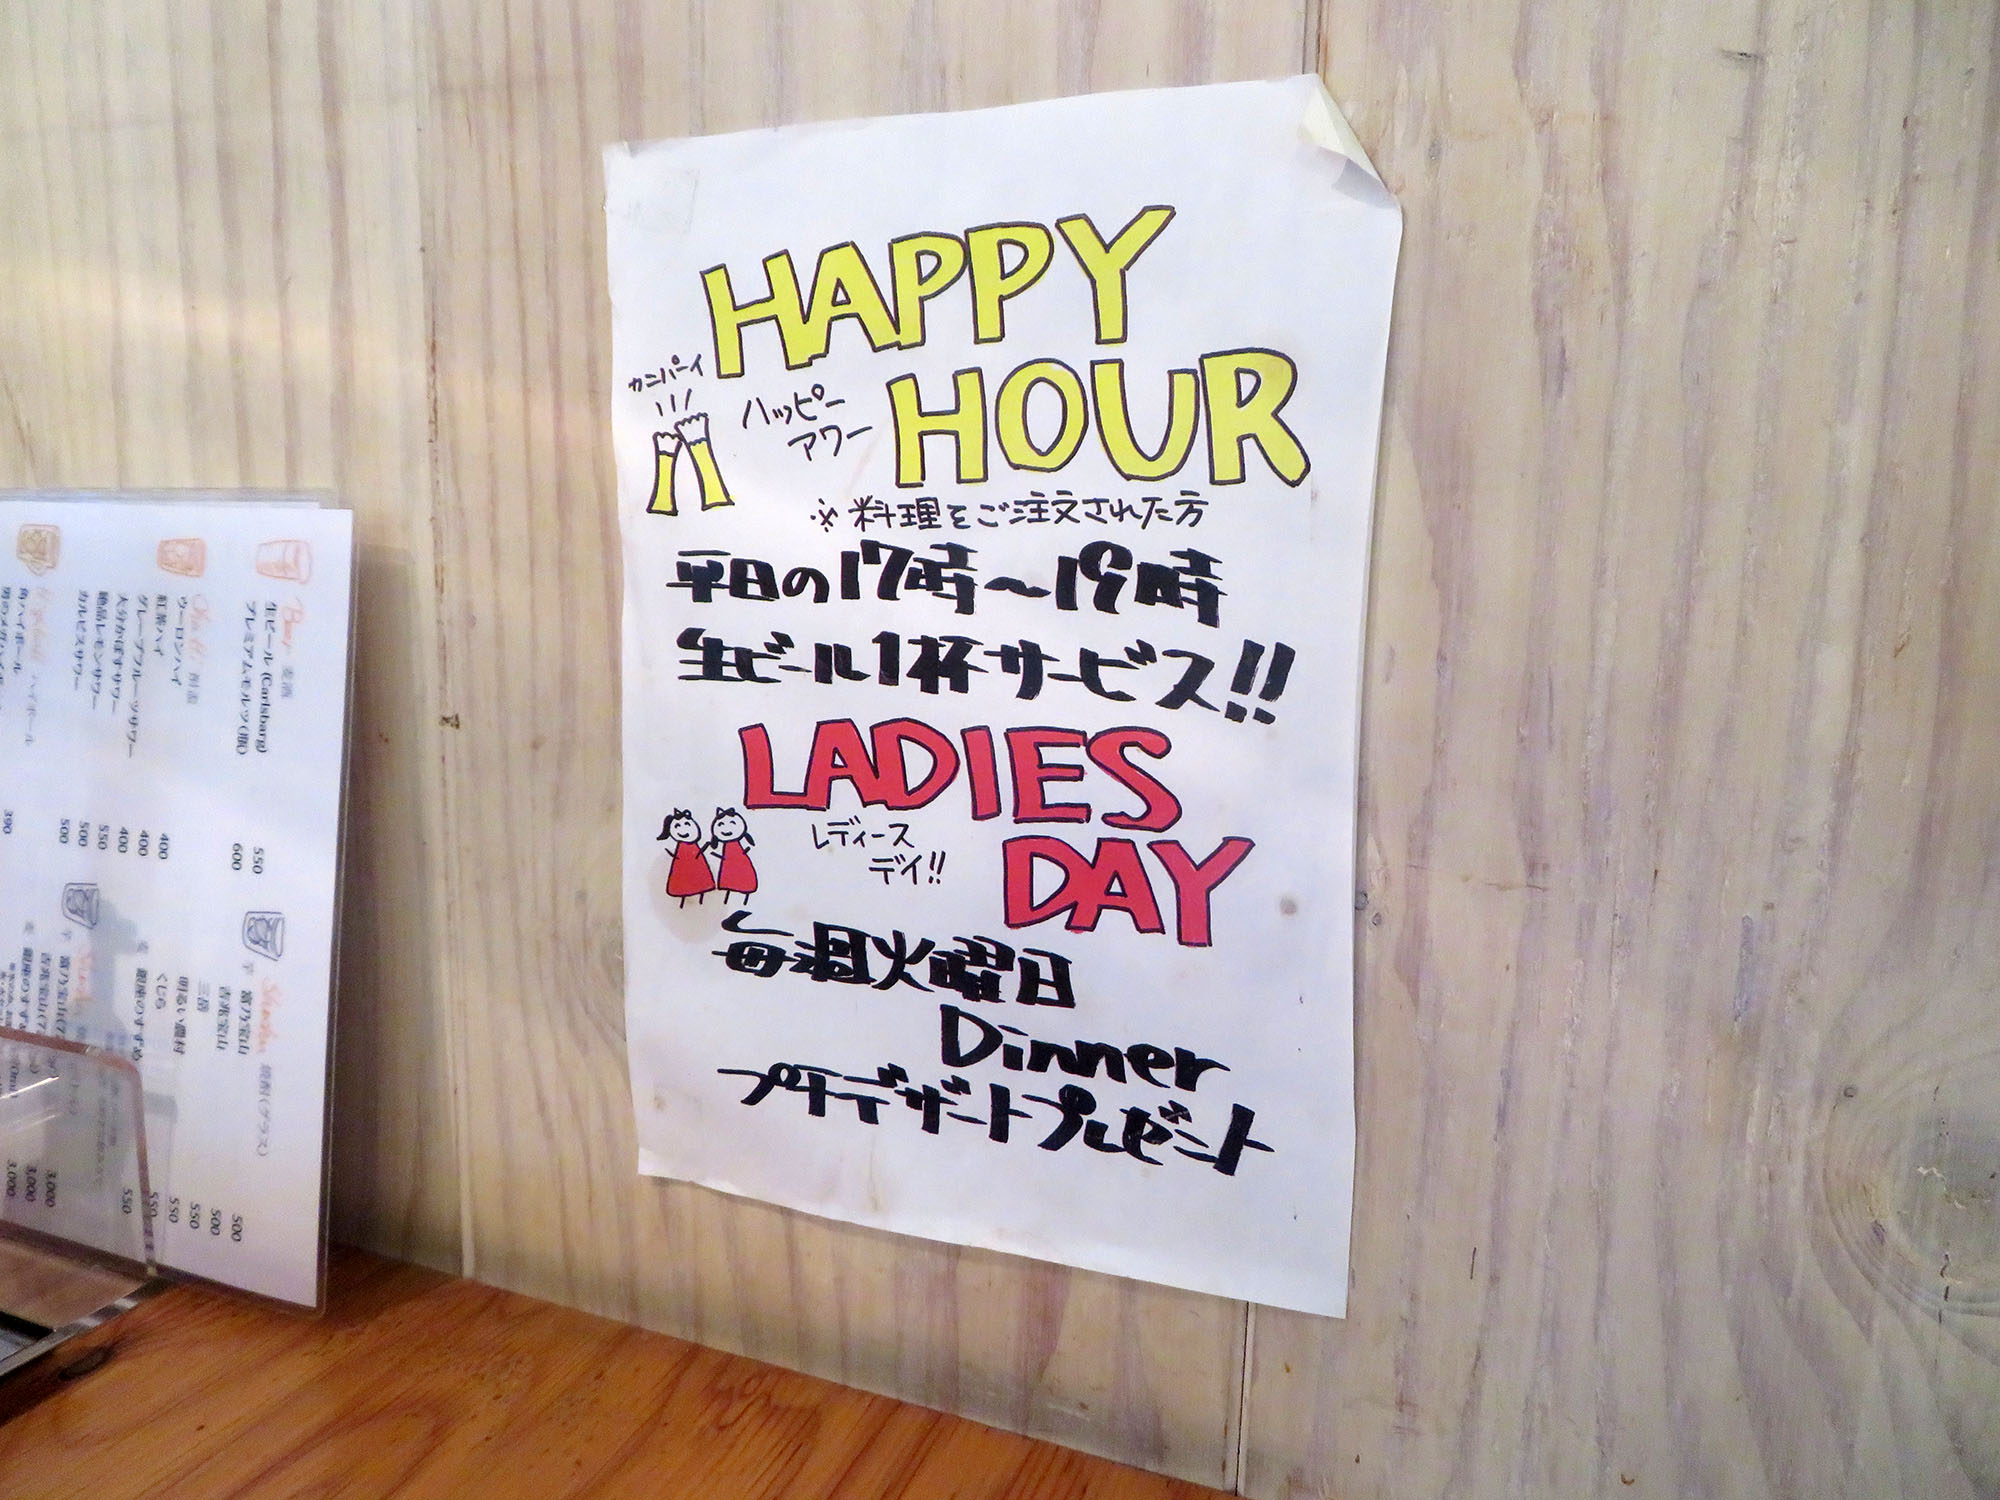 HAPPY
HOUR
カンパーイ
ハッピー
アワー
※料理をご注文された方
平日の17時〜19時
生ビール1杯サービス!!
LADIES
DAY
レディース
デイ!!
毎週火曜日
Dinner
プチデザートプレゼント
Beer 麦酒
生ビール(Carlsberg) 550
プレミアムモルツ(瓶) 600
ウーロンハイ 400
紅茶ハイ 400
グレープフルーツサワー 400
大分かぼすサワー 550
絶品レモンサワー 500
カルピスサワー 500
ハイボール
角ハイボール 390
焼酎(グラス)
富乃宝山 500
吉兆宝山 500
三岳 550
明るい農村 550
くじら 550
銀座のすずめ 550
3,000
3,000
3,000